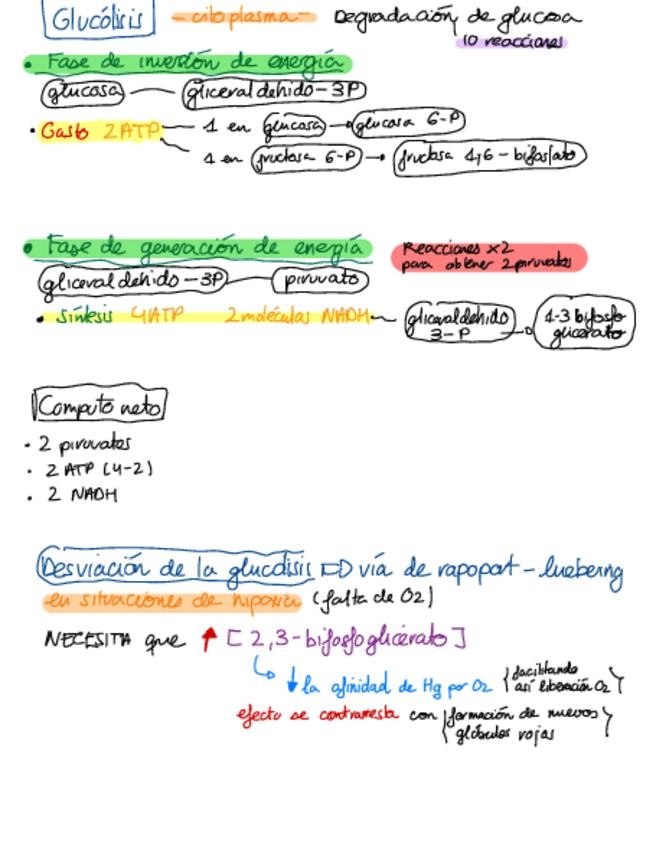 Glucólisis - citoplasma - Degradación de glucosa
10 reacciones
• Fase de inversión de energía
glucosa — gliceraldehido-3P
• Gasto 2ATP — 1 en glucosa → glucosa 6-P
1 en fructosa 6-P → fructosa 1,6-bifosfato
• Fase de generación de energía Reacciones x2
para obtener 2 piruvatos
gliceraldehido-3P — piruvato
• Síntesis 4ATP 2 moléculas NADH — gliceraldehido 3-P → 1-3 bifosfo glicerato
Computo neto
• 2 piruvatos
• 2 ATP (4-2)
• 2 NADH
Desviación de la glucólisis ⇨ vía de rapoport-luebering
en situaciones de hipoxia (falta de O2)
NECESITA que ↑ [2,3-bifosfoglicerato]
↳ ↓ la afinidad de Hg por O2 {facilitando así liberación O2}
efecto se contrarresta con {formación de nuevos glóbulos rojos}